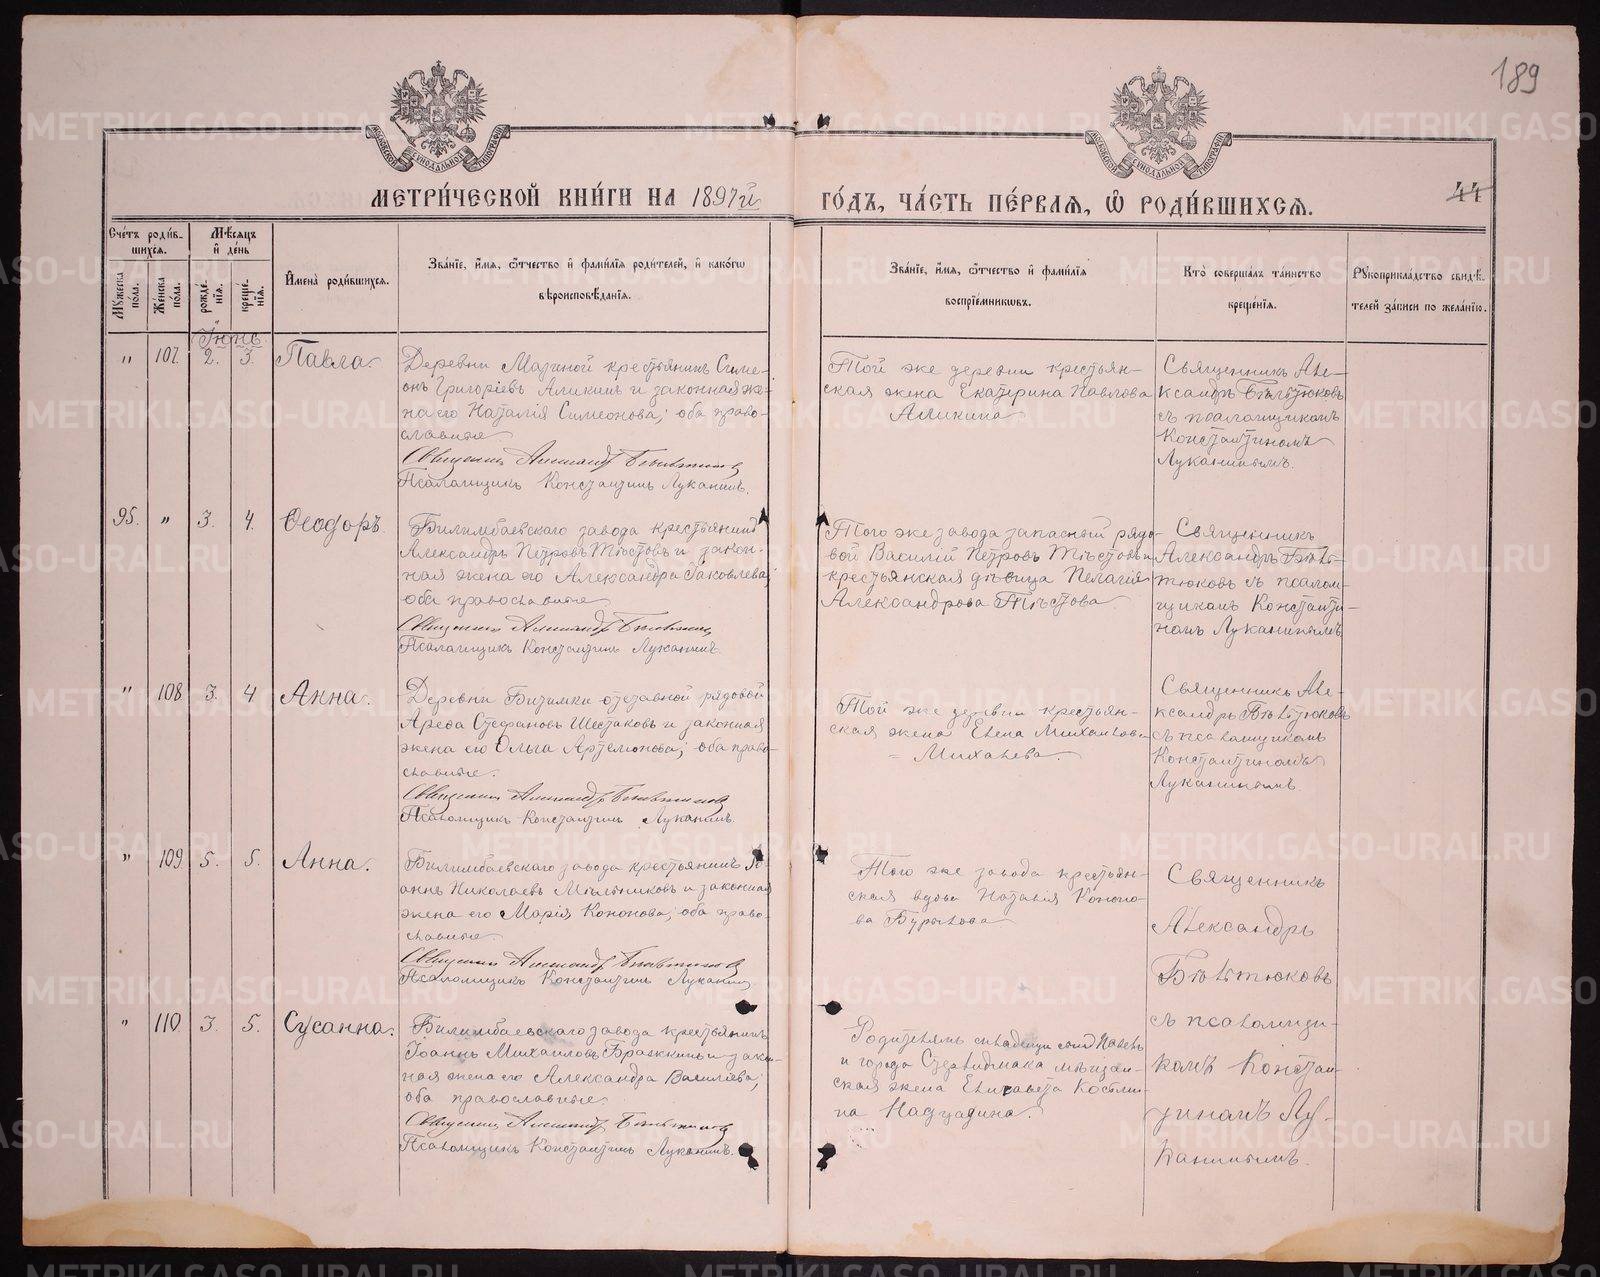 189
МОСКОВСКОЙ СѴНОДАЛЬНОЙ ТИПОГРАФІИ
МОСКОВСКОЙ СѴНОДАЛЬНОЙ ТИПОГРАФІИ
МЕТРИ́ЧЕСКОЙ КНИ́ГИ НА 1897й
ГО́ДЪ, ЧА́СТЬ ПЕ́РВАЯ, Ѡ РОДИ́ВШИХСЯ.
44
Сче́тъ роди́в-
шихся.
Мѣ́сяцъ
и де́нь
Му́жеска по́ла.
Же́нска по́ла.
рожде́нія.
креще́нія.
Имена̀ роди́вшихся.
Зва́ніе, и́мя, ѻ́тчество и фами́лія роди́телей, и како́гѡ
вѣроисповѣ́данія.
Зва́ніе, и́мя, ѻ́тчество и фами́лія
воспріе́мникѡвъ.
Кто̀ соверша́лъ та́инство
креще́нія.
Рукоприкла́дство свидѣ́-
телей за́писи по жела́нію.
Іюнь
„ 107. 2. 3. Павла.
Деревни Мазиной крестьянинъ Симе-
онъ Григоріевъ Аликинъ и законная же-
на его Наталія Симеонова; оба право-
славные
Священникъ Александръ Бѣльтюковъ
Псаломщикъ Константинъ Луканинъ.
Той же деревни крестьян-
ская жена Екатерина Павлова
Аликина
Священникъ Але-
ксандръ Бѣльтюковъ
съ псаломщикомъ
Константиномъ
Луканинымъ.
95. „ 3. 4. Ѳеодоръ.
Билимбаевскаго завода крестьянинъ
Александръ Петровъ Тѣстовъ и закон-
ная жена его Александра Іаковлева;
оба православные
Священникъ Александръ Бѣльтюковъ
Псаломщикъ Константинъ Луканинъ.
Того же завода запасный рядо-
вой Василій Петровъ Тѣстовъ и
крестьянская дѣвица Пелагія
Александрова Тѣстова
Священникъ
Александръ Бѣль-
тюковъ съ псалом-
щикомъ Константи-
номъ Луканинымъ
„ 108 3. 4 Анна.
Деревни Битимки отставной рядовой
Арефа Стефановъ Шестаковъ и законная
жена его Ольга Артемонова; оба право-
славные.
Священникъ Александръ Бѣльтюковъ
Псаломщикъ Константинъ Луканинъ.
Той же деревни крестьян-
ская жена Елена Михаилова
Михалева.
Священникъ Але-
ксандръ Бѣльтюковъ
съ псаломщикомъ
Константиномъ
Луканинымъ.
„ 109 5. 5. Анна.
Билимбаевскаго завода крестьянинъ Іо-
аннъ Николаевъ Мѣльниковъ и законная
жена его Марія Кононова; оба право-
славные
Священникъ Александръ Бѣльтюковъ
Псаломщикъ Константинъ Луканинъ
Того же завода крестьян-
ская вдова Наталія Кононо-
ва Бурылова
Священникъ
Александръ
Бѣльтюковъ
съ псаломщи-
комъ Констан-
тиномъ Лу-
канинымъ.
„ 110 3. 5. Сусанна.
Билимбаевскаго завода крестьянинъ
Іоаннъ Михаиловъ Бражкинъ и закон-
ная жена его Александра Василіева;
оба православные.
Священникъ Александръ Бѣльтюковъ
Псаломщикъ Константинъ Луканинъ.
Родителямъ сынъ Павелъ
и города Стерлитамака мѣщан-
ская жена Елизавета
на
METRIKI.GASO-URAL.RU